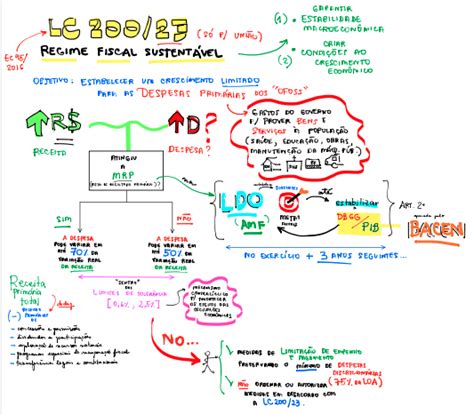 LC 200/23
(SÓ P/ UNIÃO)
EC 95/
2016
REGIME FISCAL SUSTENTÁVEL
GARANTIR
(1) • ESTABILIDADE
MACROECONÔMICA
CRIAR
(2) • CONDIÇÕES AO
CRESCIMENTO
ECONÔMICO
OBJETIVO: ESTABELECER UM CRESCIMENTO LIMITADO
PARA AS DESPESAS PRIMÁRIAS DOS "OFOSS"
GASTOS DO GOVERNO
P/ PROVER BENS E
SERVIÇOS À POPULAÇÃO
(SAÚDE, EDUCAÇÃO, OBRAS,
MANUTENÇÃO DA MÁQ. PÚB.)
R$
RECEITA
D?
DESPESA?
ATINGIU
A
MRP
(META DE RESULTADO PRIMÁRIO)?
SIM
NÃO
A DESPESA
PODE VARIAR EM
ATÉ 70% DA
VARIAÇÃO REAL
DA RECEITA
A DESPESA
PODE VARIAR EM
ATÉ 50% DA
VARIAÇÃO REAL
DA RECEITA
LDO
(AMF)
DIRETRIZES
METAS
estabilizar
a
DBGG/PIB
ART. 2º
BACEN
NO EXERCÍCIO + 3 ANOS SEGUINTES...
"DENTRO"
DOS
LIMITES DE TOLERÂNCIA
[0,6%, 2,5%]
MECANISMO
ANTICÍCLICO
P/ MINIMIZAR
OS EFEITOS
DAS OSCILAÇÕES
ECONÔMICAS
Receita
primária
total
(-)
- concessões e permissões
- dividendos e participações
- exploração de recursos naturais
- programas especiais de recuperação fiscal
- transferências legais e constitucionais
NO...
MEDIDAS DE LIMITAÇÃO DE EMPENHO
E PAGAMENTO
PRESERVANDO O MÍNIMO DE DESPESAS
DISCRICIONÁRIAS
(75% DA LOA)
NÃO ORDENAR OU AUTORIZAR
MEDIDAS EM DESACORDO COM
A LC 200/23